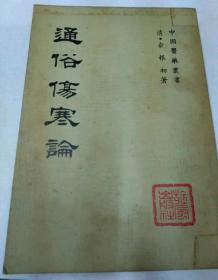 中國醫藥叢書
清·俞根初著
通俗傷寒論